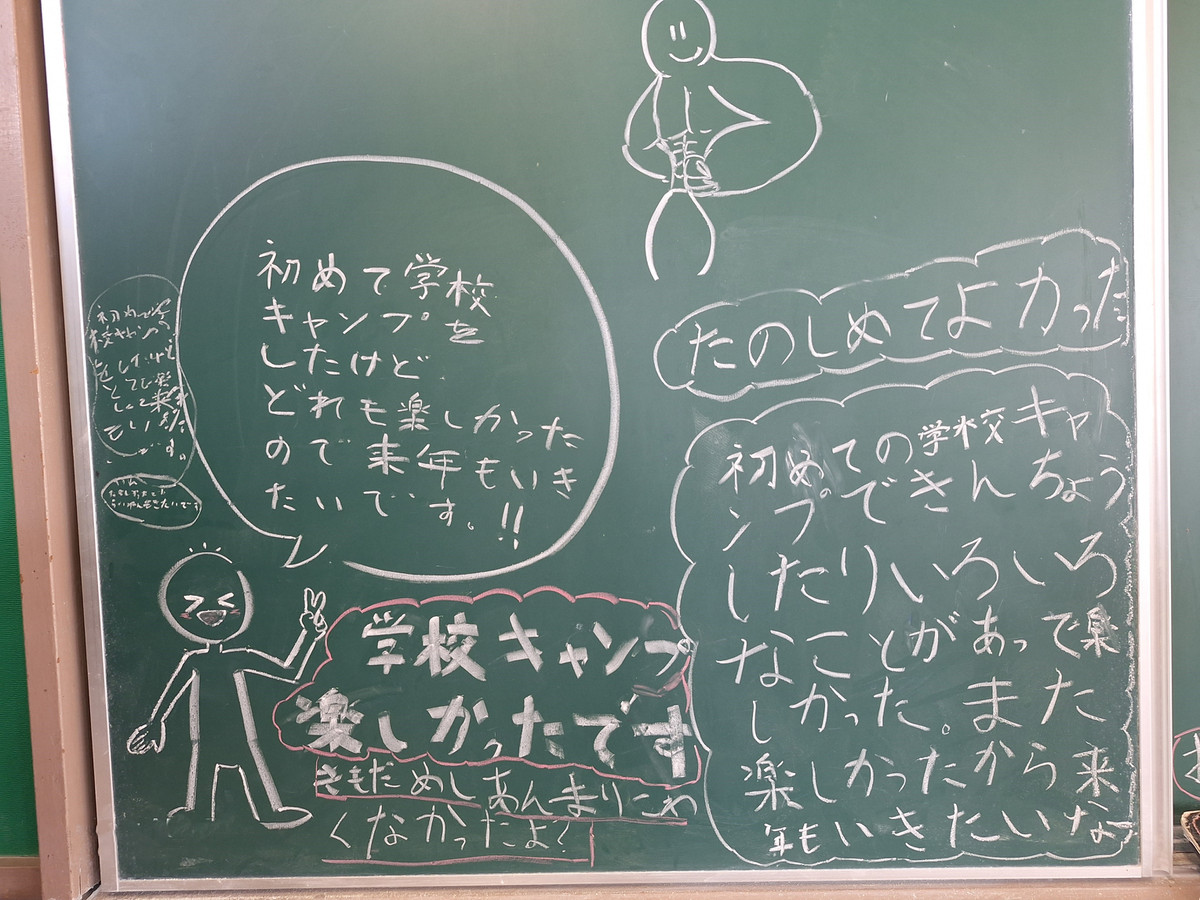 初めて学校
キャンプを
したけど
どれも楽しかった
ので来年もいき
たいです。!!
たのしめてよかった
初めての学校キャ
ンプ。できんちょう
したりいろいろ
なことがあって楽
しかった。また
楽しかったから来
年もいきたいな
学校キャンプ
楽しかったです
きもだめしあんまりこわ
くなかったよ?